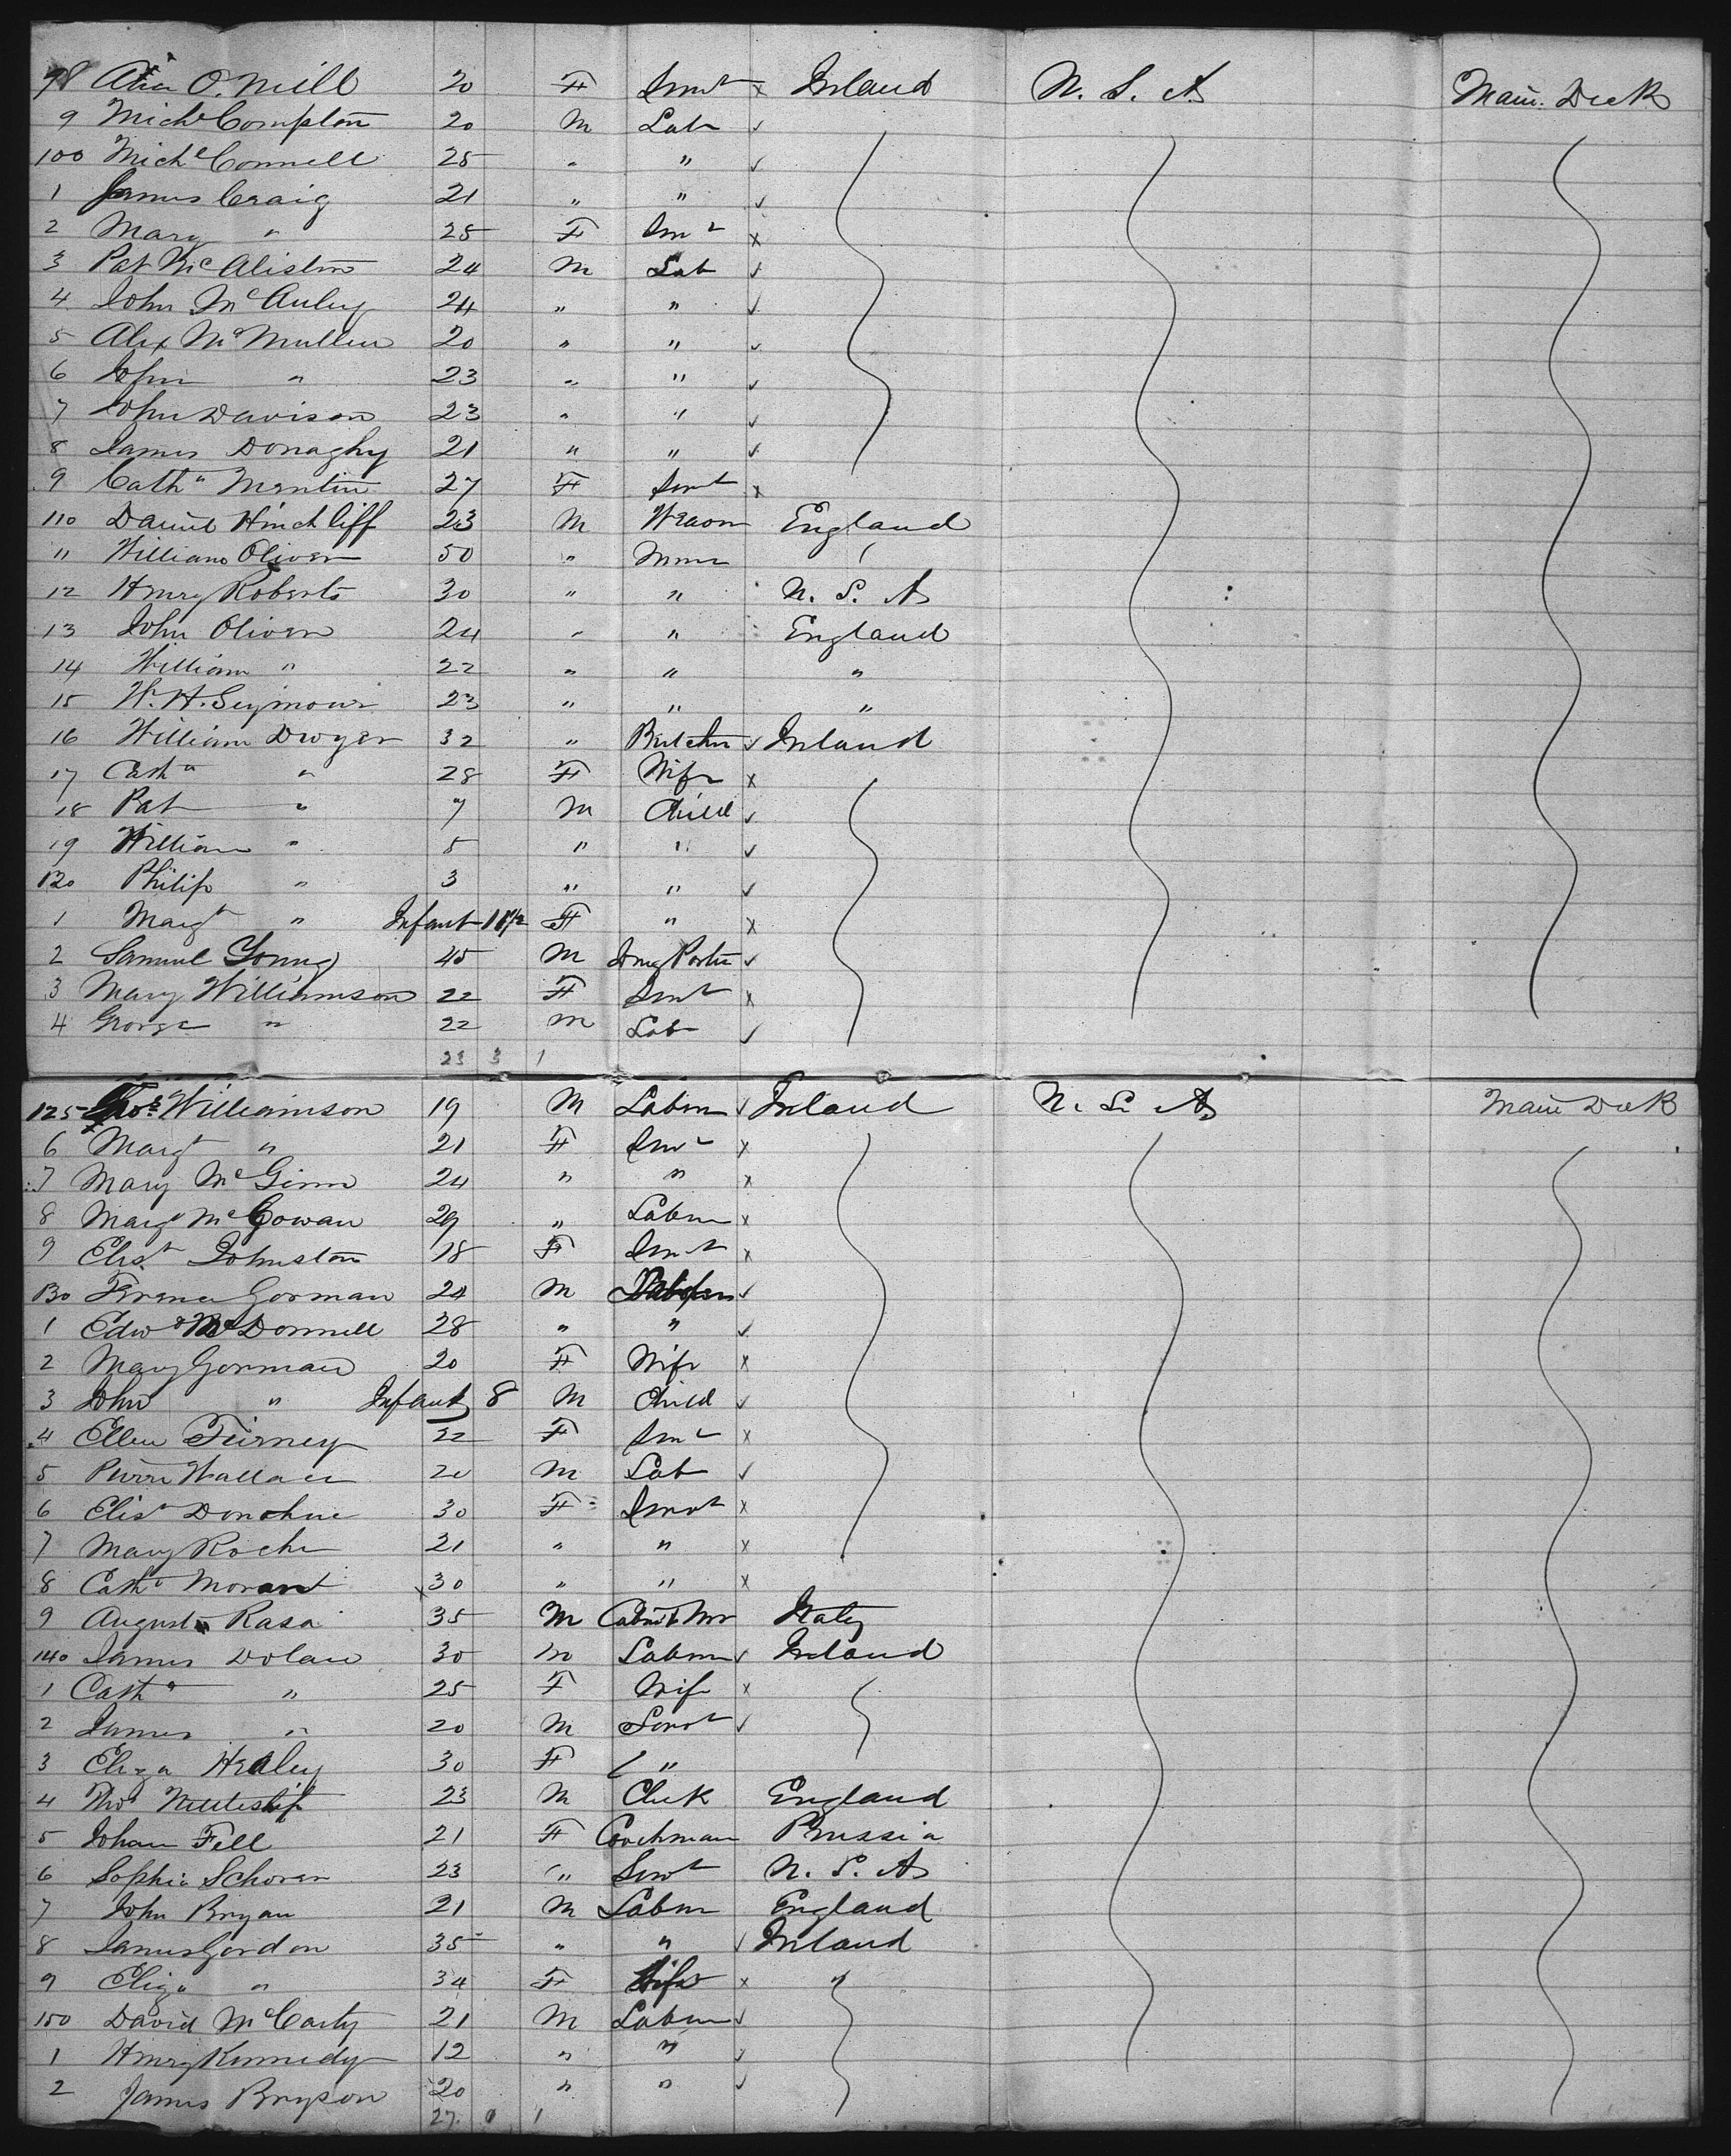 98 O. Neill 20 F Servt x Ireland U. S. A Main Deck
9 Michl Compton 20 M Labr ✓
100 Michl Connell 25 " " ✓
1 James Craig 21 " " ✓
2 Mary " 25 F Servt x
3 Pat McAliston 24 M Lab ✓
4 John McAuley 24 " " ✓
5 Alex McMullen 20 " " ✓
6 John " 23 " " ✓
7 John Davison 23 " " ✓
8 James Donaghy 21 " " ✓
9 Cath 27 F Servt x
110 Daniel Hinchliff 23 M England
11 William Oliver 50 " Miner
12 Henry Roberts 30 " " U. S. A
13 John Oliver 24 " " England
14 William " 22 " " "
15 W. H. Seymour 23 " " "
16 William Dwyer 32 " Butcher ✓ Ireland
17 Cathn " 28 F Wife x
18 Pat " 7 M Child ✓
19 William " 5 " " ✓
120 Philip " 3 " " ✓
1 Margt " Infant F " x
2 Samuel Young 45 M Porter ✓
3 Mary Williamson 22 F Servt x
4 George " 22 M Lab ✓
23 3 1
125 Thos Williamson 19 M Labr ✓ Ireland U. S. A Main Deck
6 Margt " 21 F Servt x
7 Mary McGinn 24 " " x
8 Margt McGowan 29 " Labr x
9 Elist Johnston 18 F Servt x
130 Gorman 24 M ✓
1 Edwd McDonnell 28 " " ✓
2 Mary Gorman 20 F Wife x
3 John " Infant 8 M Child ✓
4 Ellen Tierney 22 F Servt x
5 Wallace 20 M Lab ✓
6 Elist Donohue 30 F Servt x
7 Mary Roche 21 " " x
8 Cath Morant 30 " " x
9 Rasa 35 M Italy
140 James Dolan 30 M Labr ✓ Ireland
1 Cath " 25 F Wife x
2 James " 20 M Servt ✓
3 Eliza Healey 30 F "
4 Thos 23 M Clerk England
5 Johan Fell 21 F Coachman Prussia
6 Sophia Schoren 23 " Servt U. S. A
7 John Bryan 21 M Labr England
8 James Gordon 35 " " ✓ Ireland
9 Eliza " 34 F Wife x "
150 David McCarty 21 M Labr ✓
1 Henry Kennedy 12 " " ✓
2 James Bryson 20 " " ✓
27 0 1